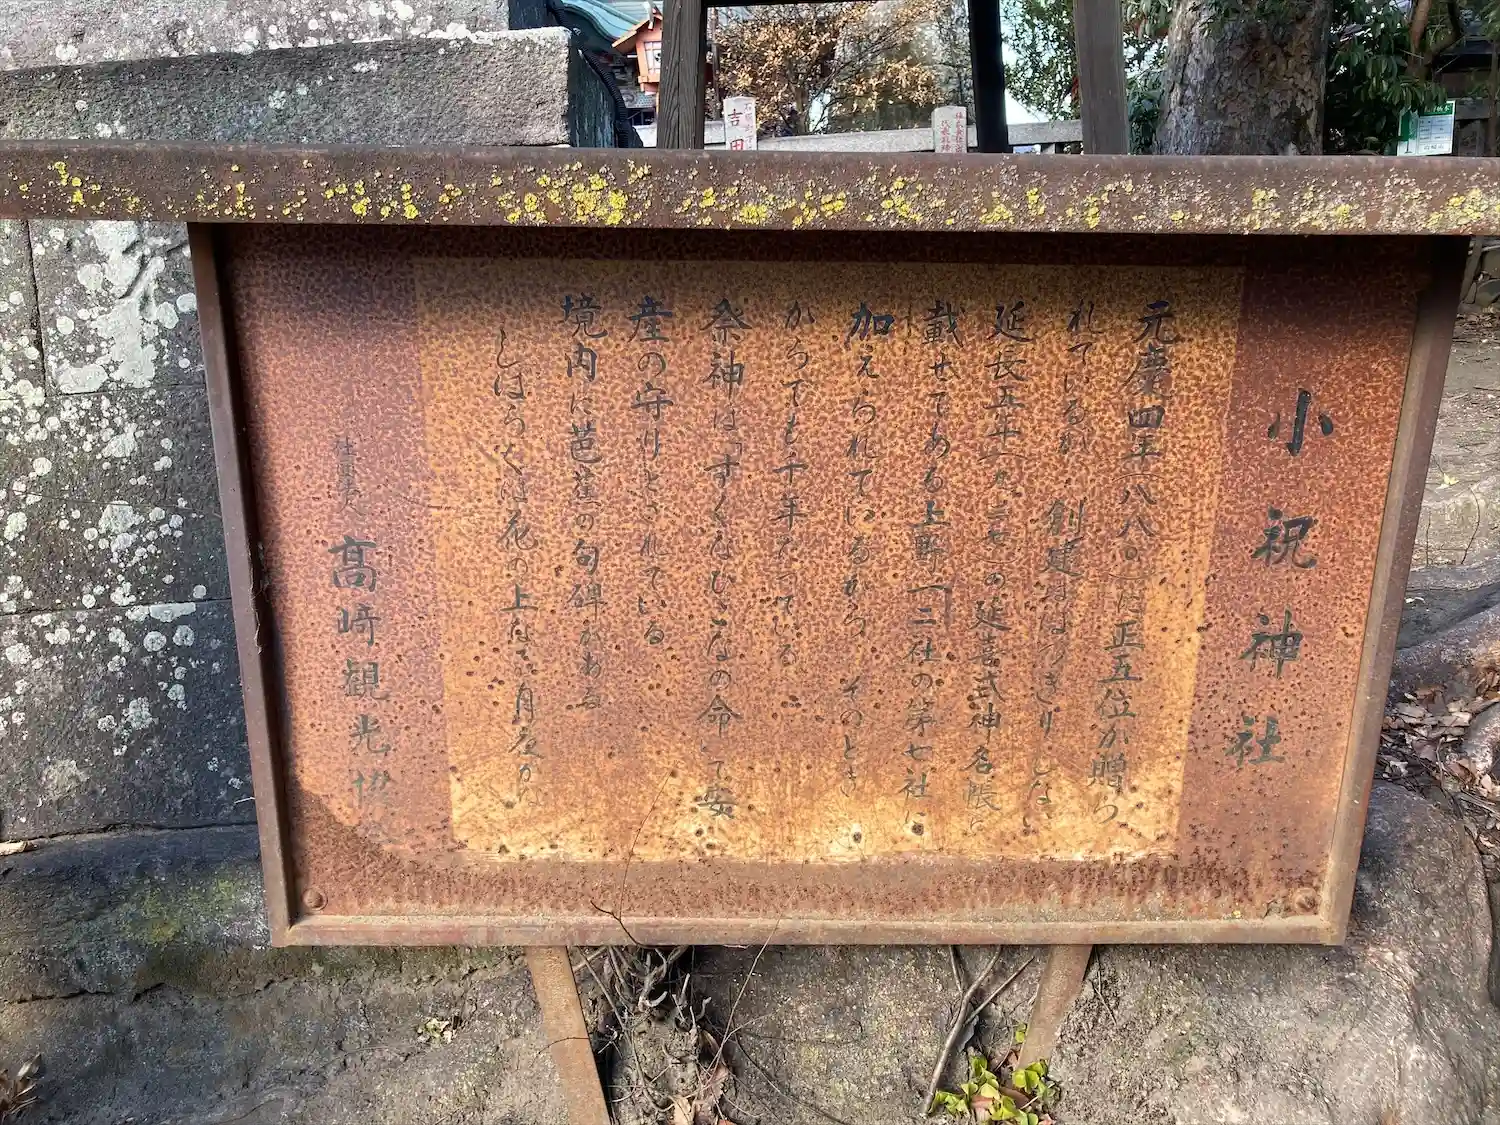 小祝神社
元慶四年(八八〇)に正五位が贈ら
れているが 創建ははっきりしない
延長五年(九二七)の延喜式神名帳に
載せてある上野十二社の第七社に
加えられているから そのとき
からでも千年たっている
祭神は「すくなひこなの命」で安
産の守りとされている
境内に芭蕉の句碑がある
しばらくは花の上なる月夜かな
社団法人 高崎観光協
吉田